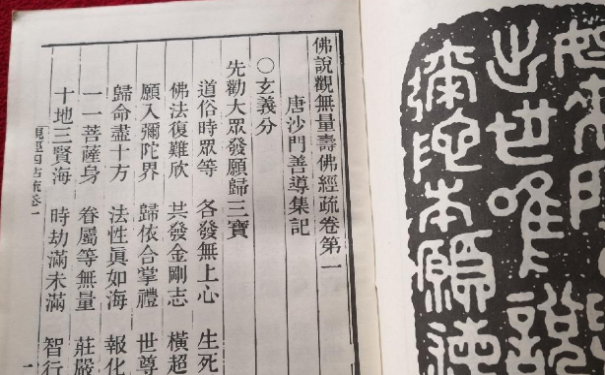 如來所
出世唯說
彌陀本願海
佛說觀無量壽佛經疏卷第一
唐沙門善導集記
○玄義分
先勸大眾發願歸三寶
道俗時眾等　各發無上心　生死
佛法復難欣　共發金剛志　橫超
願入彌陀界　歸依合掌禮　世尊
歸命盡十方　法性眞如海　報化
一一菩薩身　眷屬等無量　莊嚴
十地三賢海　時劫滿未滿　智行
觀經四帖疏卷一　一